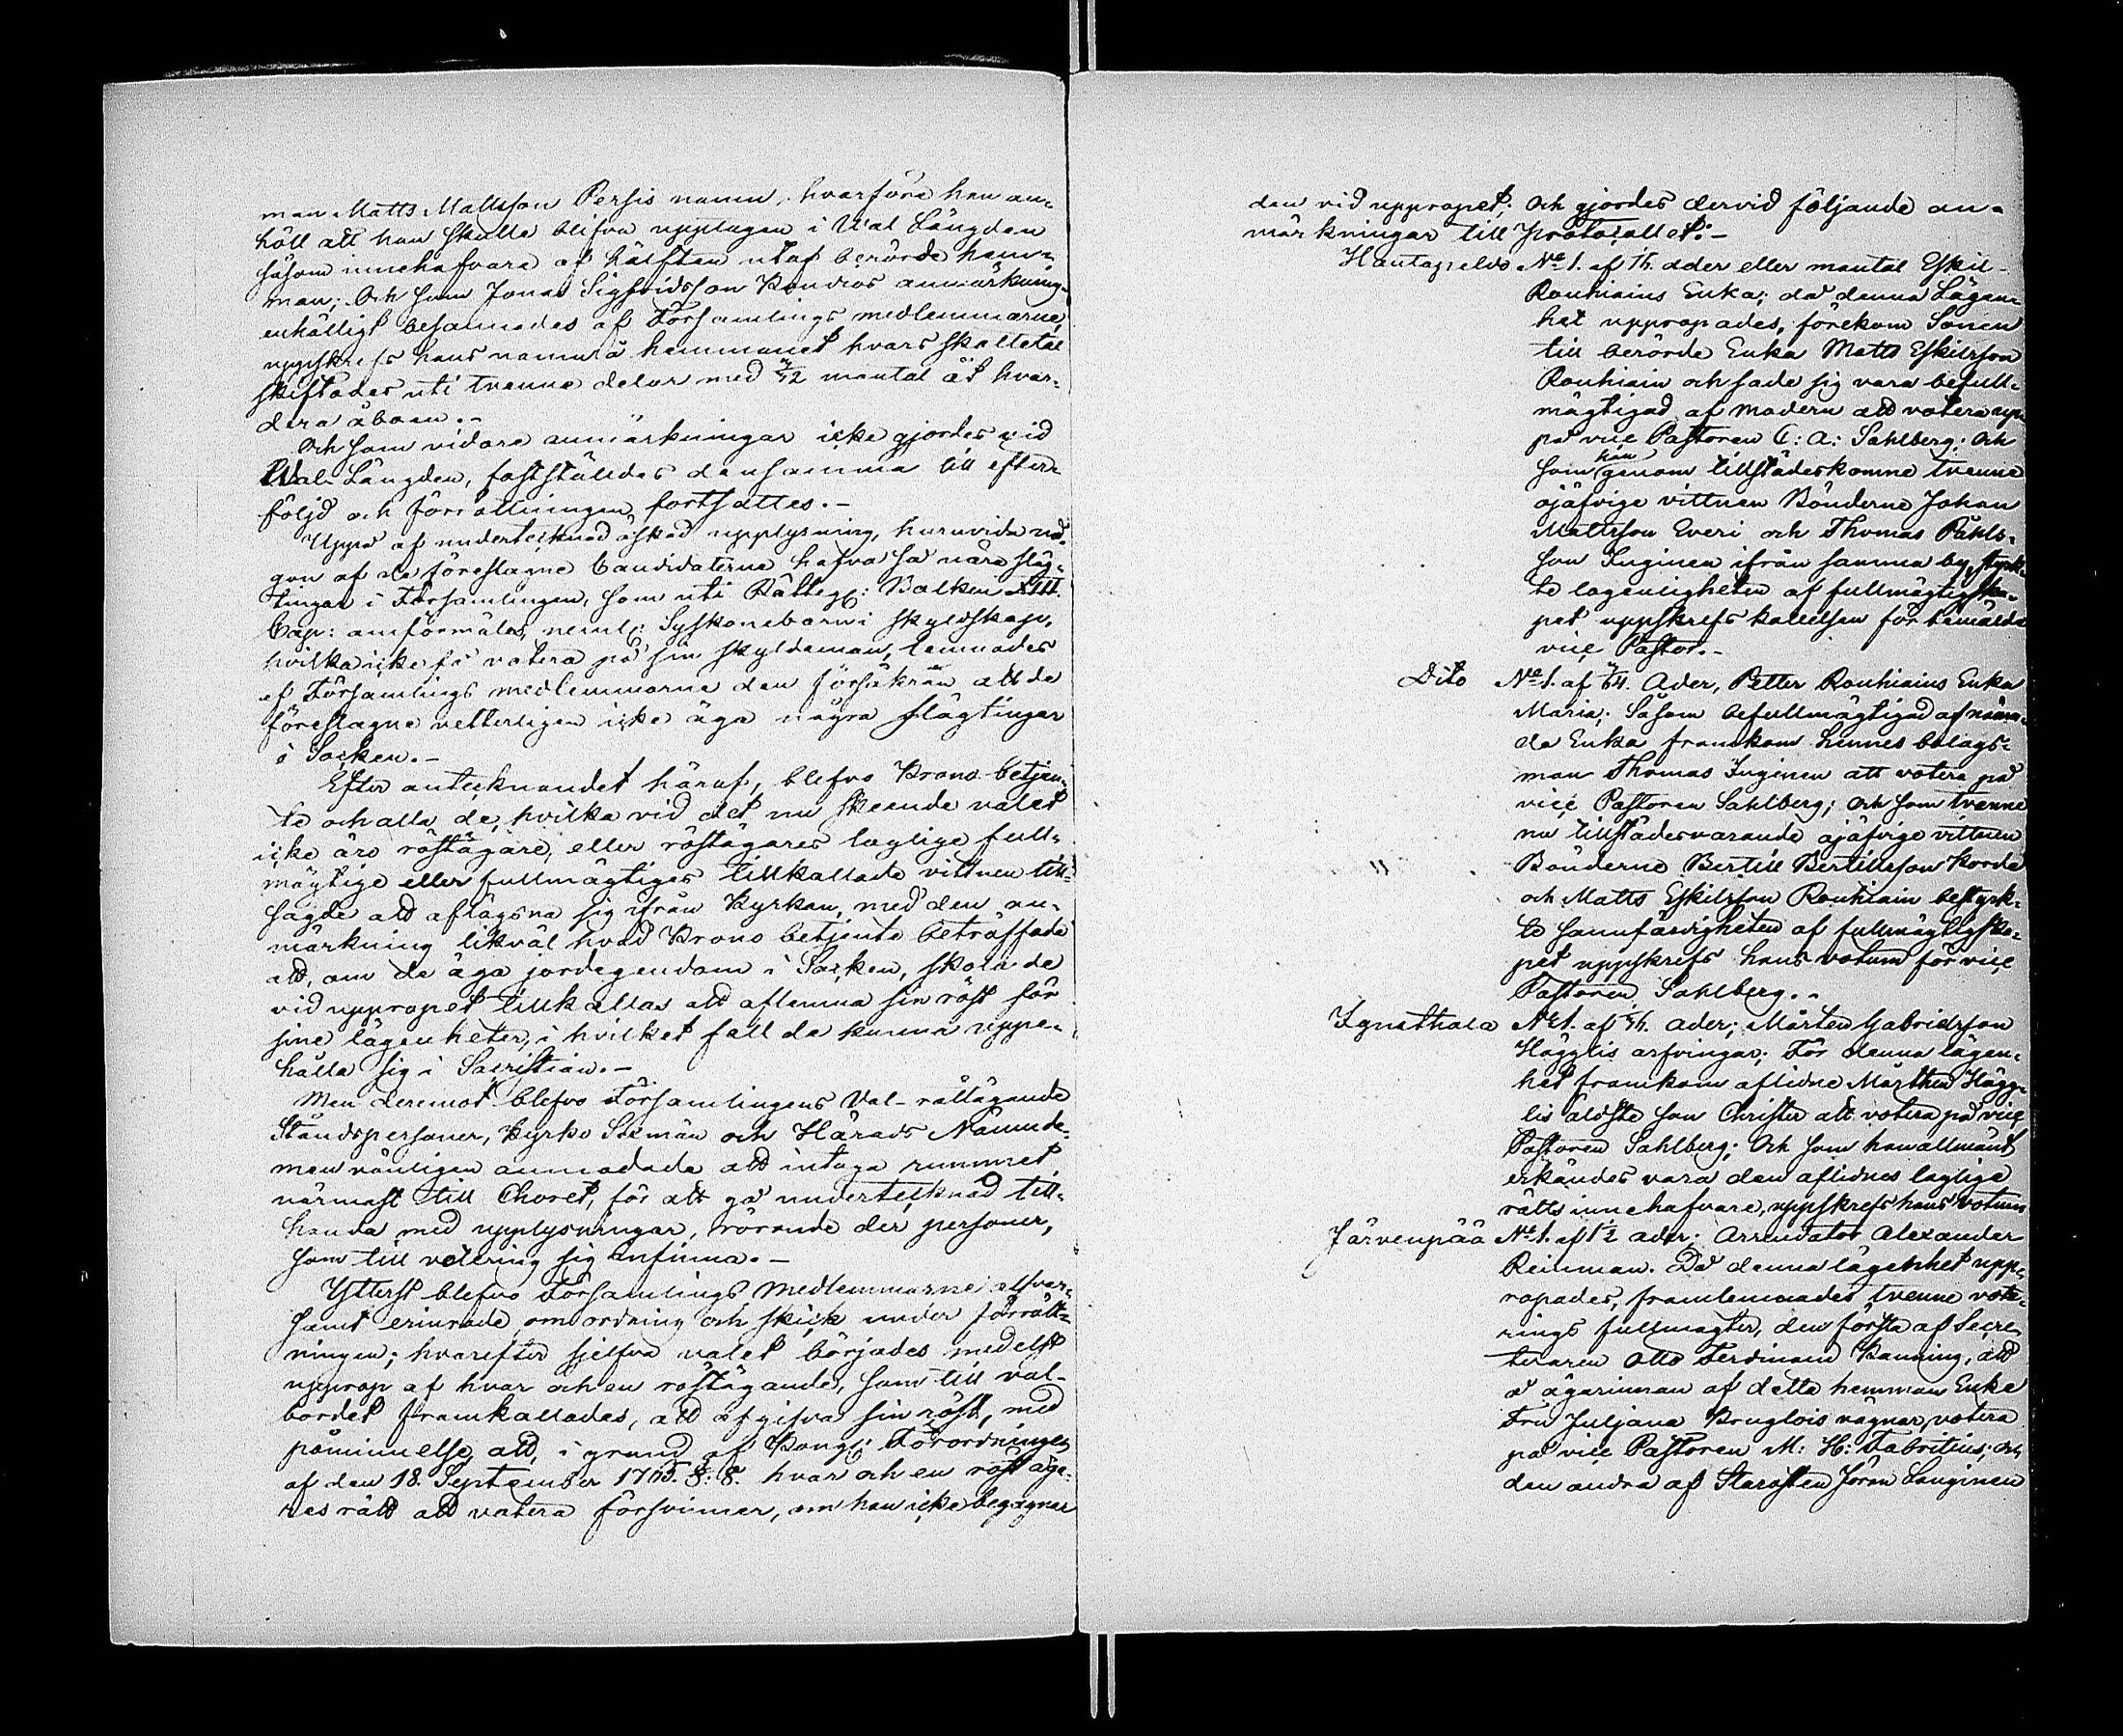 man Matts Mattsson Persis namn, hvarföre han an-
höll att han skulle blifva upptagen i Val Längden
såsom innehafvare af hälften utaf berörde hem-
man; Och som Jonas Sigfridsson anmärkning
enhälligt besannades af Församlings medlemmarne,
uppskrefs hans namn å hemmanet hvars skattetal
skiftades uti tvenne delar med mantal åt hvar-
dera åboen.-
Och som vidare anmärkningar icke gjordes vid
Val-Längden, fastställdes densamma till efter-
följd och förrättningen fortsattes.-
Uppå af undertecknad äskad upplysning, huruvida nå-
gon af de föreslagne Candidaterne hafva så nära släg-
tingar i Församlingen, som uti Rätteg: Balken XIII.
Cap: omförmäles, neml: Syskonebarn i skyldskap,
hvilka icke få votera på sin skyldeman, lemnades
af Församlings medlemmarne den försäkran att de
föreslagne vetterligen icke äga några slägtingar
i Socken.-
Efter antecknandet häraf, blefvo Krono betjen-
te och alla de, hvilka vid det nu skeende valet
icke äro röstägare, eller röstägares laglige full-
mägtige eller fullmägtiges tillkallade vittnen till-
sagde att aflägsna sig ifrån Kyrkan, med den an-
märkning likväl hvad Krono betjente beträffade
att, om de äga jordegendom i Socken, skola de
vid uppropet tillkallas att aflemna sin röst för
sine lägenheter, i hvilket fall de kunna uppe-
hålla sig i Sacristian.-
Men deremot blefvo Församlingens Val-rättägande
Ståndspersoner, Kyrko Sexmän och Härads Nämnde-
män vänligen anmodade att intaga rummet
närmast till Choret, för att gå undertecknad till-
handa med upplysningar, rörande de personer,
som till votering sig infinna.-
Ytterst blefvo Församlings medlemmarne allvar-
samt erinrade om ordning och skick under förrätt-
ningen; hvarefter sjelfva valet börjades medelst
upprop af hvar och en röstägande, som till val-
bordet framkallades, att afgifva sin röst, med
påminnelse, att, i grund af Kongl: Förordningen
af den 18. September 17 §. 8. hvar och en röstäga-
res rätt att votera försvinner, om han icke begagnar
den vid uppropet; Och gjordes dervid följande an-
märkningar till Protocollet:-
Hautapeldo No 1. af öder eller mantal Eskil
Rouhiains Enka; då denna Lägen-
het uppropades, förekom Sonen
till berörde Enka Matts Eskilsson
Rouhiain och sade sig vara befull-
mägtigad af modern att votera upp-
på vice Pastoren C: A: Sahlberg: Och
som han genom tillstädeskomne tvenne
ojäfvige vittnen Bönderne Johan
Mattsson Everi och Thomas Påhls-
son Inginen ifrån samma by, styrk-
te lagenligheten af fullmägtigska-
pet uppskrefs kallelsen för bemälde
vice Pastor.-
Dito No 1. af öder, Petter Rouhiains Enka
Maria; Såsom befullmägtigad af nämn-
da Enka framkom hennes bolags-
man Thomas Inginen att votera på
vice Pastoren Sahlberg; Och som tvenne
nu tillstädesvarande ojäfvige vittnen
Bönderne Bertill Bertillsson Korda
och Matts Eskilsson Rouhiain bestyrk-
te sannfärdigheten af fullmägtigska-
pet uppskrefs hans votum för vice
Pastoren Sahlberg.-
Ignathala No 1. af öder; Mårten Gabrielsson
Hägglis arfvingar; För denna lägen-
het framkom aflidne Mårthen Hägg-
lis äldste son Christer att votera på vice
Pastoren Sahlberg; Och som han allmänt
erkändes vara den aflidnes laglige
rätts innehafvare, uppskrefs hans votum
Järvenpää No 1. af 1/2 öder; Arrendator Alexander
Reinman. Då denna lägenhet upp-
ropades, framlemnades tvenne vote-
rings fullmagter, den första af Secre-
teraren Otto Ferdinand Kanning, att
å ägarinnan af detta hemman Enke
Fru Juljana Kruglois vägnar, votera
på vice Pastoren M: H: Fabritius; och
den andra af Starosten Jöran Langinen